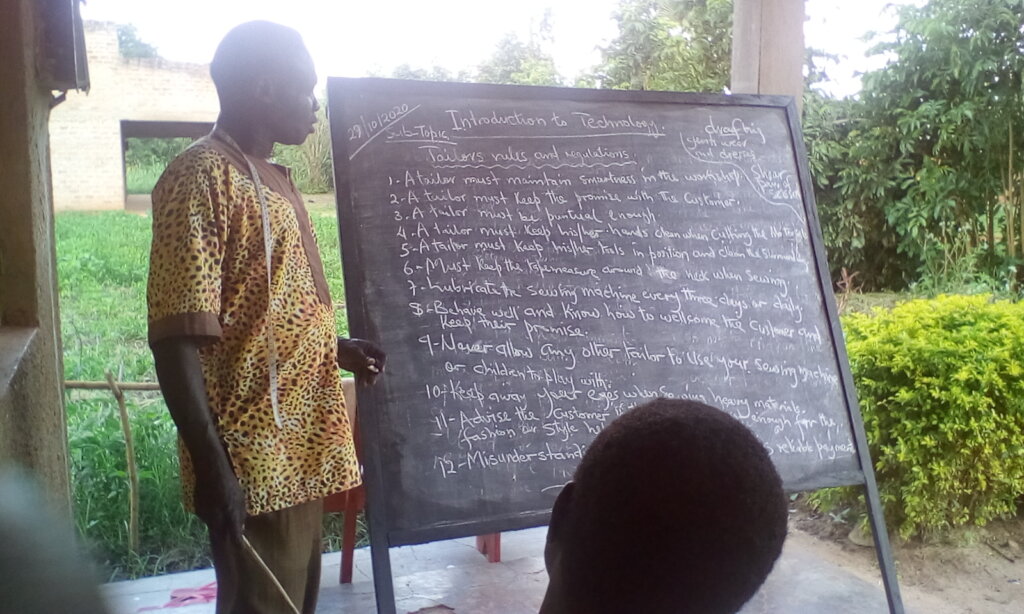 29/10/2020
Introduction to Technology.
Sub-Topic
Tailors rules and regulations
drafting
1- A tailor must maintain smartness in the workshop
2- A tailor must keep the promise with the customer.
3. A tailor must be puntual enough
4. A tailor must keep his/her hands clean when cutting the
5- A tailor must keep his/her tools in position and clean the
6- Must keep the tapemeasure around the neck when sewing
7- Lubricate the sewing machine every three days or daily
8- Behave well and know how to wellcome the customer and
keep their promise.
9- Never allow any other tailor to use your sewing machine
or children to play with.
10- Keep away your eyes when sewing heavy materials.
11- Advise the customer if enough for the
fashion or style
12- Misunderstand